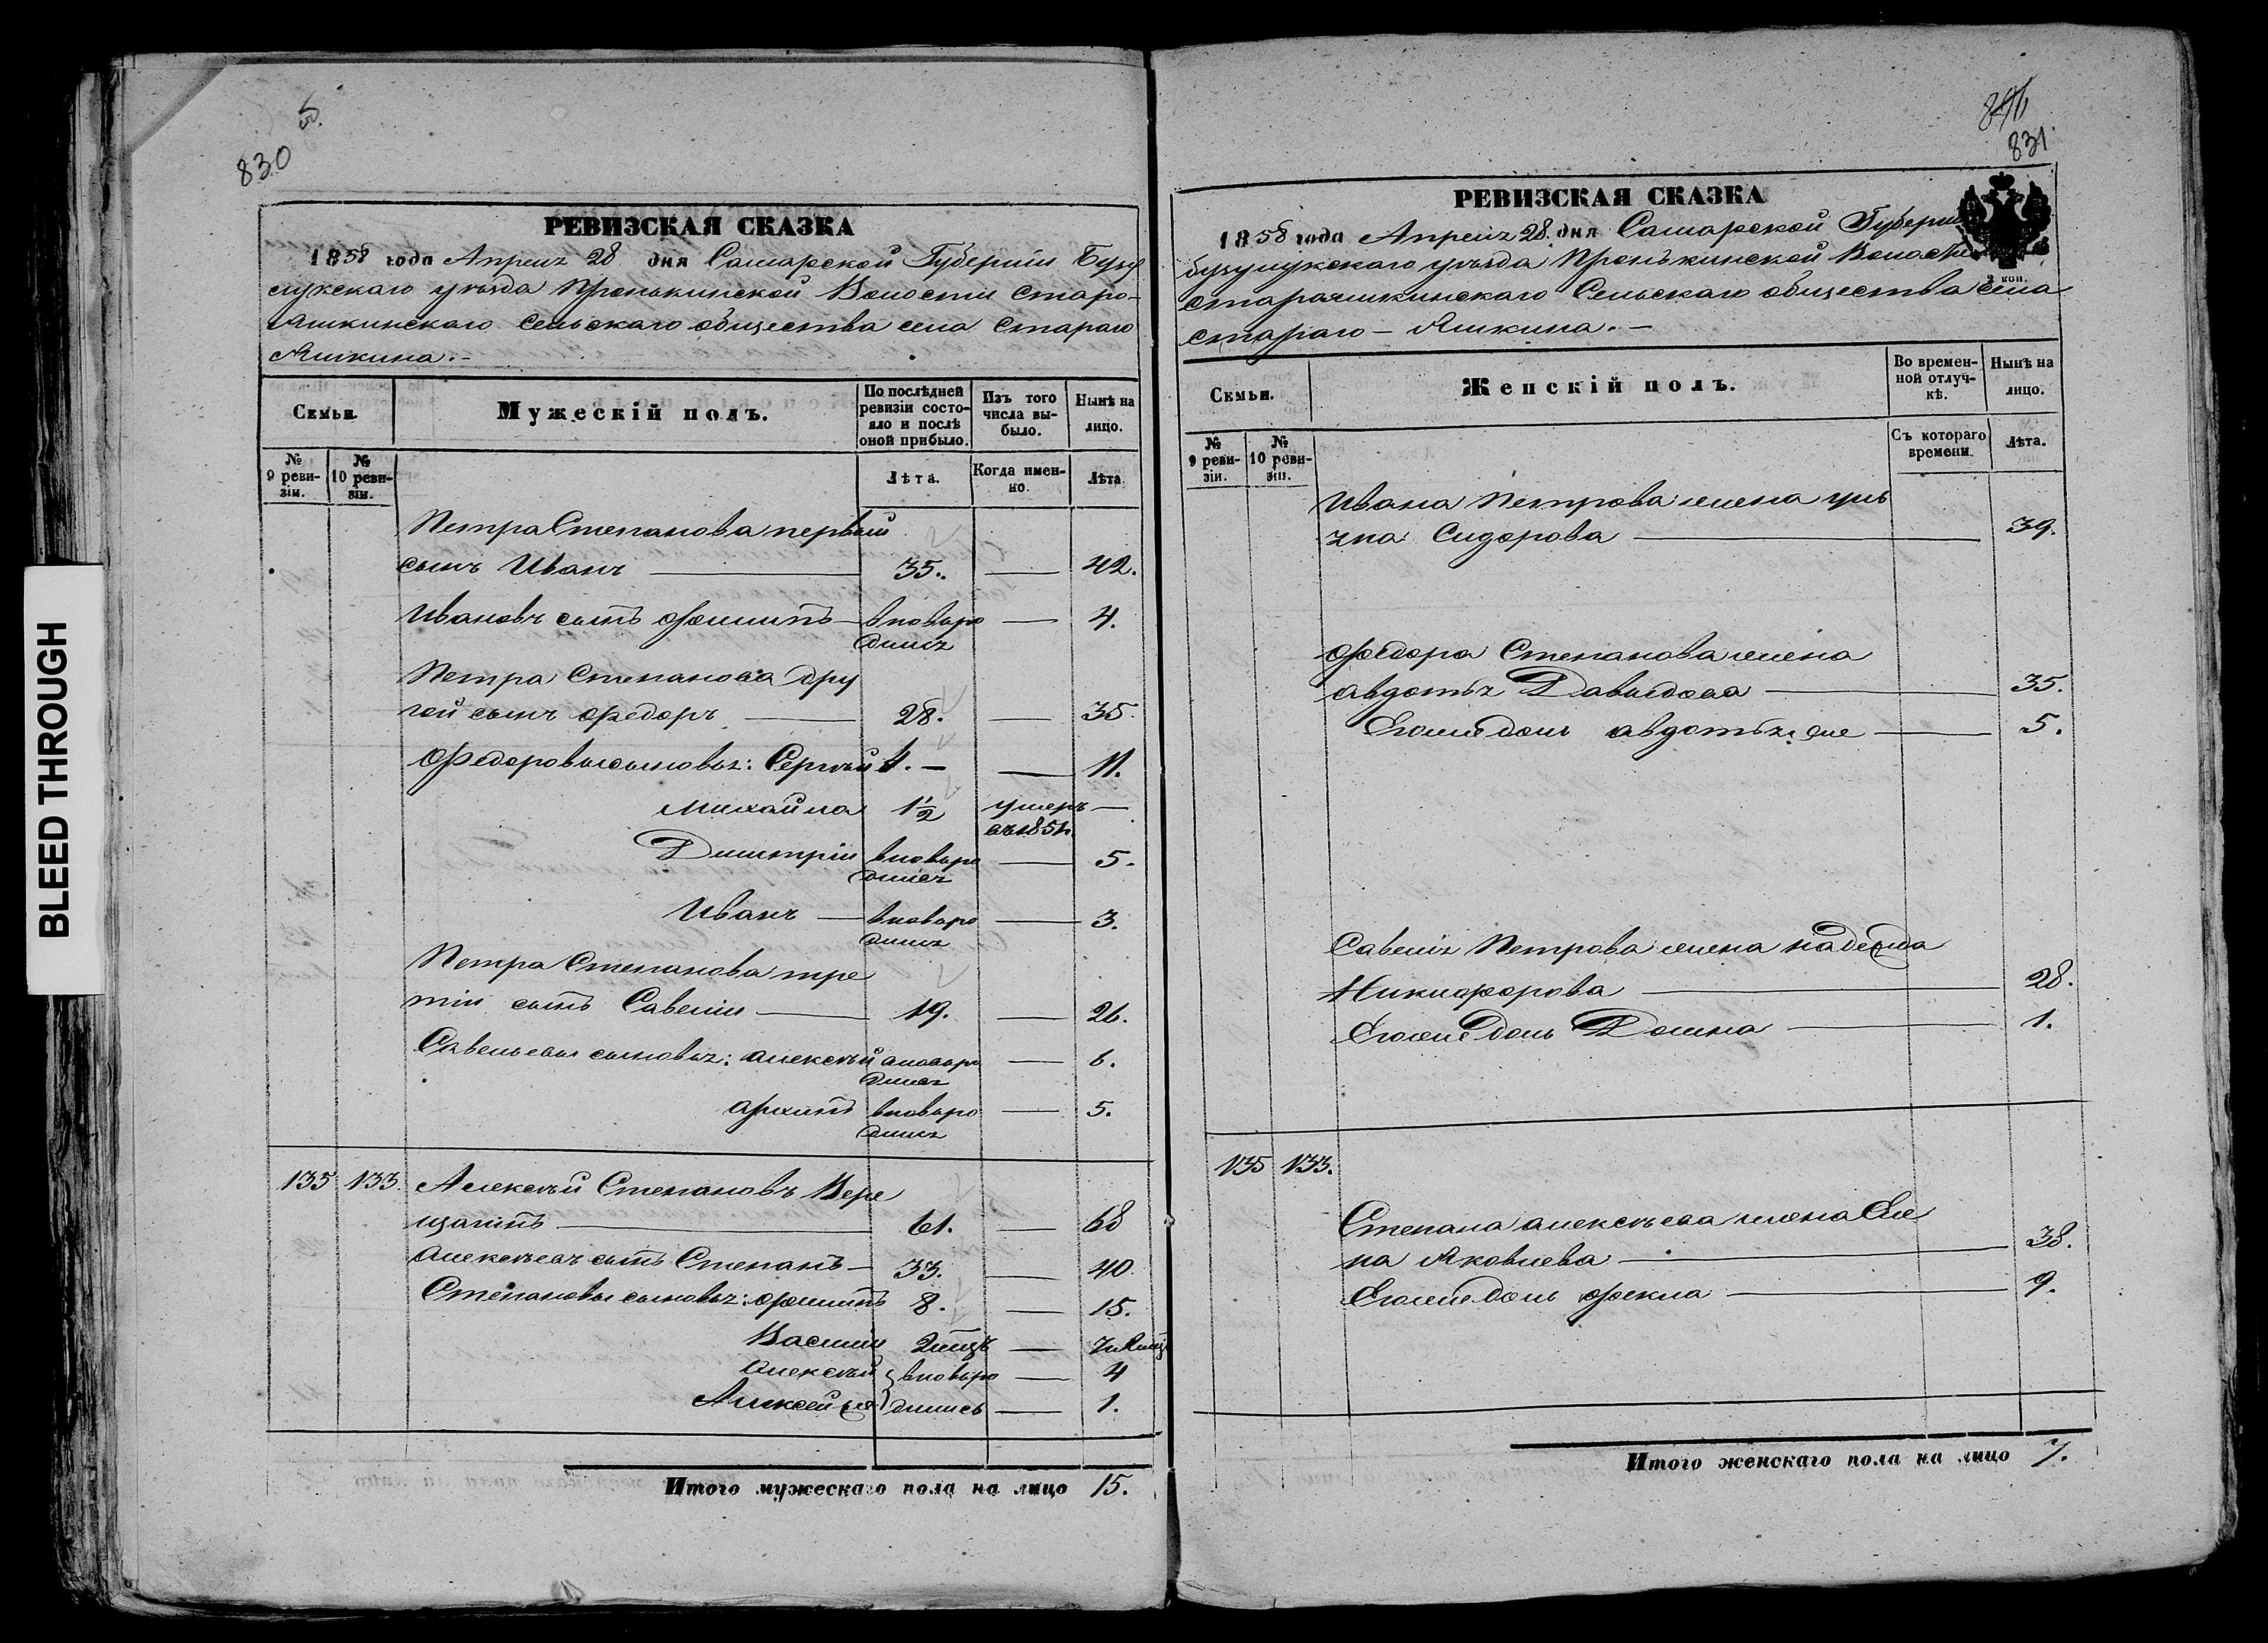 BLEED THROUGH
5.
830
РЕВИЗСКАЯ СКАЗКА
1858 года Апреля 28 дня Самарской Губернии Бузу
лукскаго уѣзда Пронькинской Волости Старо-
Яшкинскаго Сельскаго общества села Стараго
Яшкина.-
Семьи.
Мужескій полъ.
По послѣдней ревизіи состояло и послѣ оной прибыло.
Изъ того числа выбыло.
Нынѣ на лицо.
№ 9 ревизіи.
№ 10 ревизіи.
Лѣта.
Когда именно.
Лѣта.
Петра Степанова первый
сынъ Иванъ 35. 42.
Ивановъ сынъ Филипъ вновьро 4.
дился
Петра Степанова дру
гой сынъ Федоръ 28. 35.
Федоровы сыновья: Сергѣй 4. 11.
Михайла 1½ умеръ
въ 1851.
Димитрій вновьро 5.
дился
Иванъ вновьро 3.
дился
Петра Степанова тре
тій сынъ Савелій 19. 26.
Савельевы сыновья: Алексѣй вновьро 6.
дился
Архипъ вновьро 5.
дился
135 133. Алексѣй Степановъ Вере
щагинъ 61. 68
Алексѣевъ сынъ Степанъ 33. 40
Степановы сыновья: Филипъ 8. 15.
Василій 2 мцъ
Алексѣй вновьро 4
Алексѣй дились 1.
Итого мужескаго пола на лицо 15.
831.
РЕВИЗСКАЯ СКАЗКА
3 коп.
1858 года Апреля 28 дня Самарской Губерніи
бузулукскаго уѣзда Пронькинской Волости
Тарояшкинскаго Сельскаго общества села
Стараго - Яшкина.-
Семьи.
Женскій полъ.
Во временной отлучкѣ.
Нынѣ на лицо.
№ 9 ревизіи.
№ 10 ревизіи.
Съ котораго времени.
Лѣта.
Ивана Петрова жена уль
яна Сидорова 39.
Федора Степанова жена
авдотья Давыдова 35.
Егоже дочь авдотья 5.
Савелія Петрова жена надежда
Никифорова 28.
Егоже дочь Домна 1.
135 133.
Степана алексѣева жена Еле
на Яковлева 38.
Егоже дочь Фекла 9.
Итого женскаго пола на лицо 7.